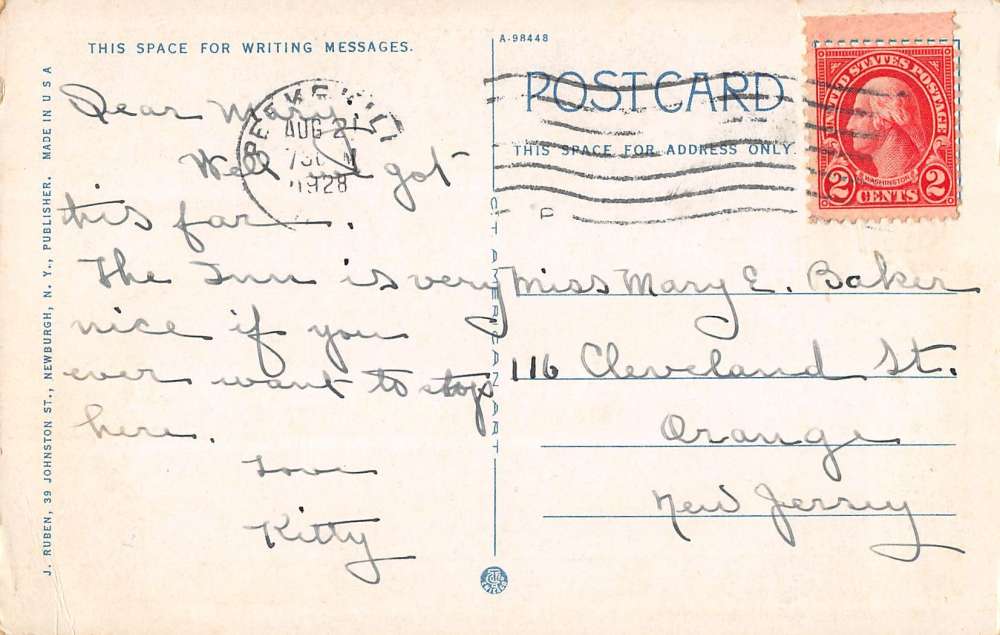 THIS SPACE FOR WRITING MESSAGES.
Dear Mary,
Well got
this far.
The Inn is very
nice if you
ever want to stop
here.
Love
Kitty
J. RUBEN, 39 JOHNSTON ST., NEWBURGH, N. Y., PUBLISHER. MADE IN U S A
PEEKSKILL
AUG 21
1928
CT AMERICAN ART
A-98448
POSTCARD
THIS SPACE FOR ADDRESS ONLY
UNITED STATES POSTAGE
WASHINGTON
2 CENTS 2
Miss Mary E. Baker
116 Cleveland St.
Orange
New Jersey